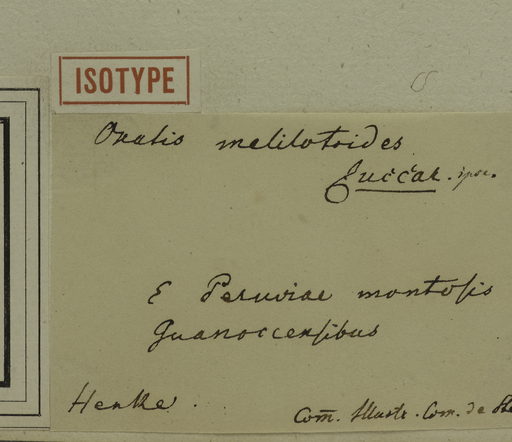 ISOTYPE
Oxalis melilotoides
Zuccar. ipse.
E Peruviae montosis
Guanoccensibus
Henke.
Com. Illustr. Com. de